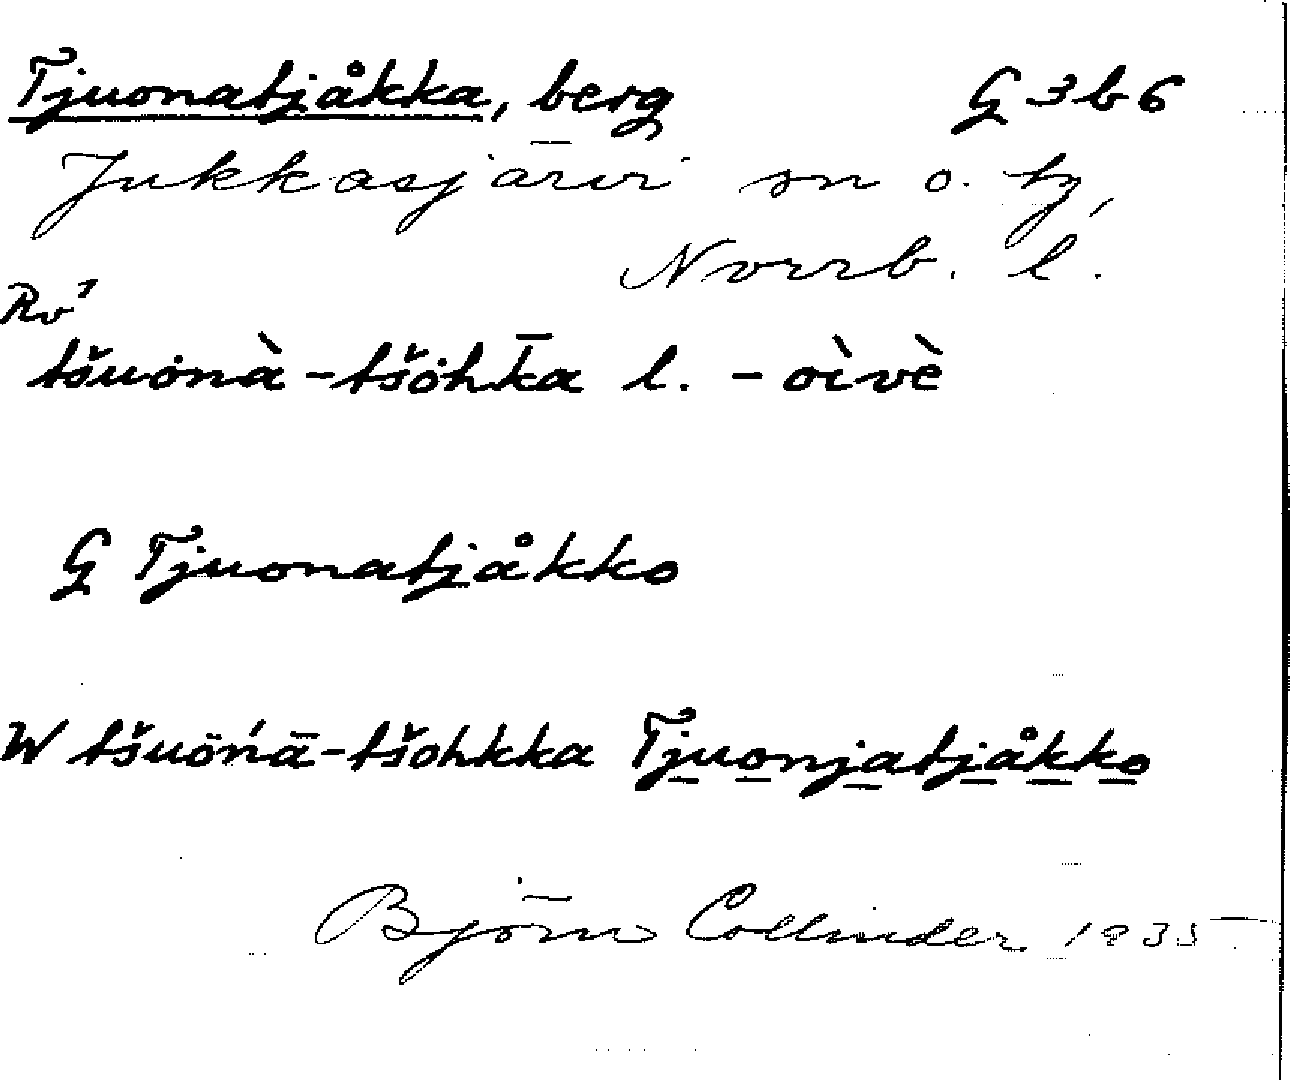 Tjuonatjåkka, berg G 3 b 6
Jukkasjärvi sn o. tg,
Norrb. l.
Rv¹
tšuọnà-tšọ̌hk̄a l. -oìvè
G Tjuonatjåkko
W tšuöńā-tšohkka Tjuonjatjåkko
Björn Collinder 1935